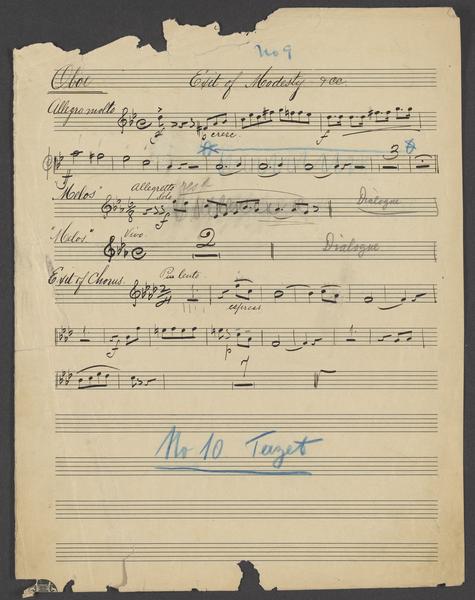 No 9
Oboe Exit of Modesty &cc.
Allegro molto
f cresc. f
f 3
"Melos" Allegretto solo Dialogue
"Melos." Vivo. 2 Dialogue
Exit of Chorus. Piu lento.
f espress
f p
7
No 10 Terzet